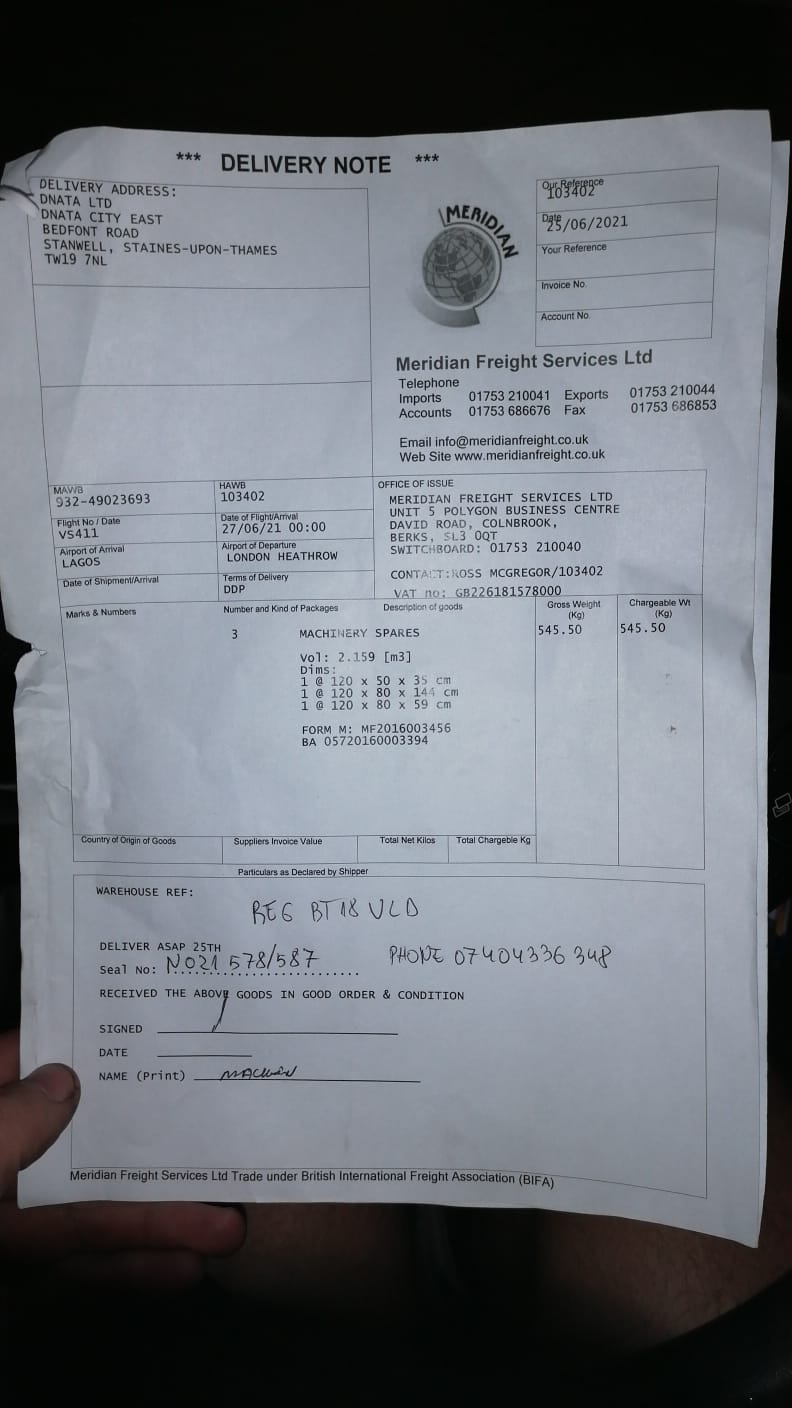 *** DELIVERY NOTE ***
DELIVERY ADDRESS:
DNATA LTD
DNATA CITY EAST
BEDFONT ROAD
STANWELL, STAINES-UPON-THAMES
TW19 7NL
MERIDIAN
Our Reference
103402
Date
25/06/2021
Your Reference
Invoice No.
Account No.
Meridian Freight Services Ltd
Telephone
Imports 01753 210041 Exports 01753 210044
Accounts 01753 686676 Fax 01753 686853
Email info@meridianfreight.co.uk
Web Site www.meridianfreight.co.uk
MAWB
932-49023693
HAWB
103402
Flight No / Date
VS411
Date of Flight/Arrival
27/06/21 00:00
Airport of Arrival
LAGOS
Airport of Departure
LONDON HEATHROW
Date of Shipment/Arrival
Terms of Delivery
DDP
OFFICE OF ISSUE
MERIDIAN FREIGHT SERVICES LTD
UNIT 5 POLYGON BUSINESS CENTRE
DAVID ROAD, COLNBROOK,
BERKS, SL3 0QT
SWITCHBOARD: 01753 210040
CONTACT:ROSS MCGREGOR/103402
VAT no: GB226181578000
Marks & Numbers Number and Kind of Packages Description of goods Gross Weight (Kg) Chargeable Wt (Kg)
3 MACHINERY SPARES 545.50 545.50
Vol: 2.159 [m3]
Dims:
1 @ 120 x 50 x 35 cm
1 @ 120 x 80 x 144 cm
1 @ 120 x 80 x 59 cm
FORM M: MF2016003456
BA 05720160003394
Country of Origin of Goods Suppliers Invoice Value Total Net Kilos Total Chargeble Kg
Particulars as Declared by Shipper
WAREHOUSE REF:
REG BT18 VLD
DELIVER ASAP 25TH
Seal No: N021 578/587 PHONE 07404336348
RECEIVED THE ABOVE GOODS IN GOOD ORDER & CONDITION
SIGNED
DATE
NAME (Print)
Meridian Freight Services Ltd Trade under British International Freight Association (BIFA)